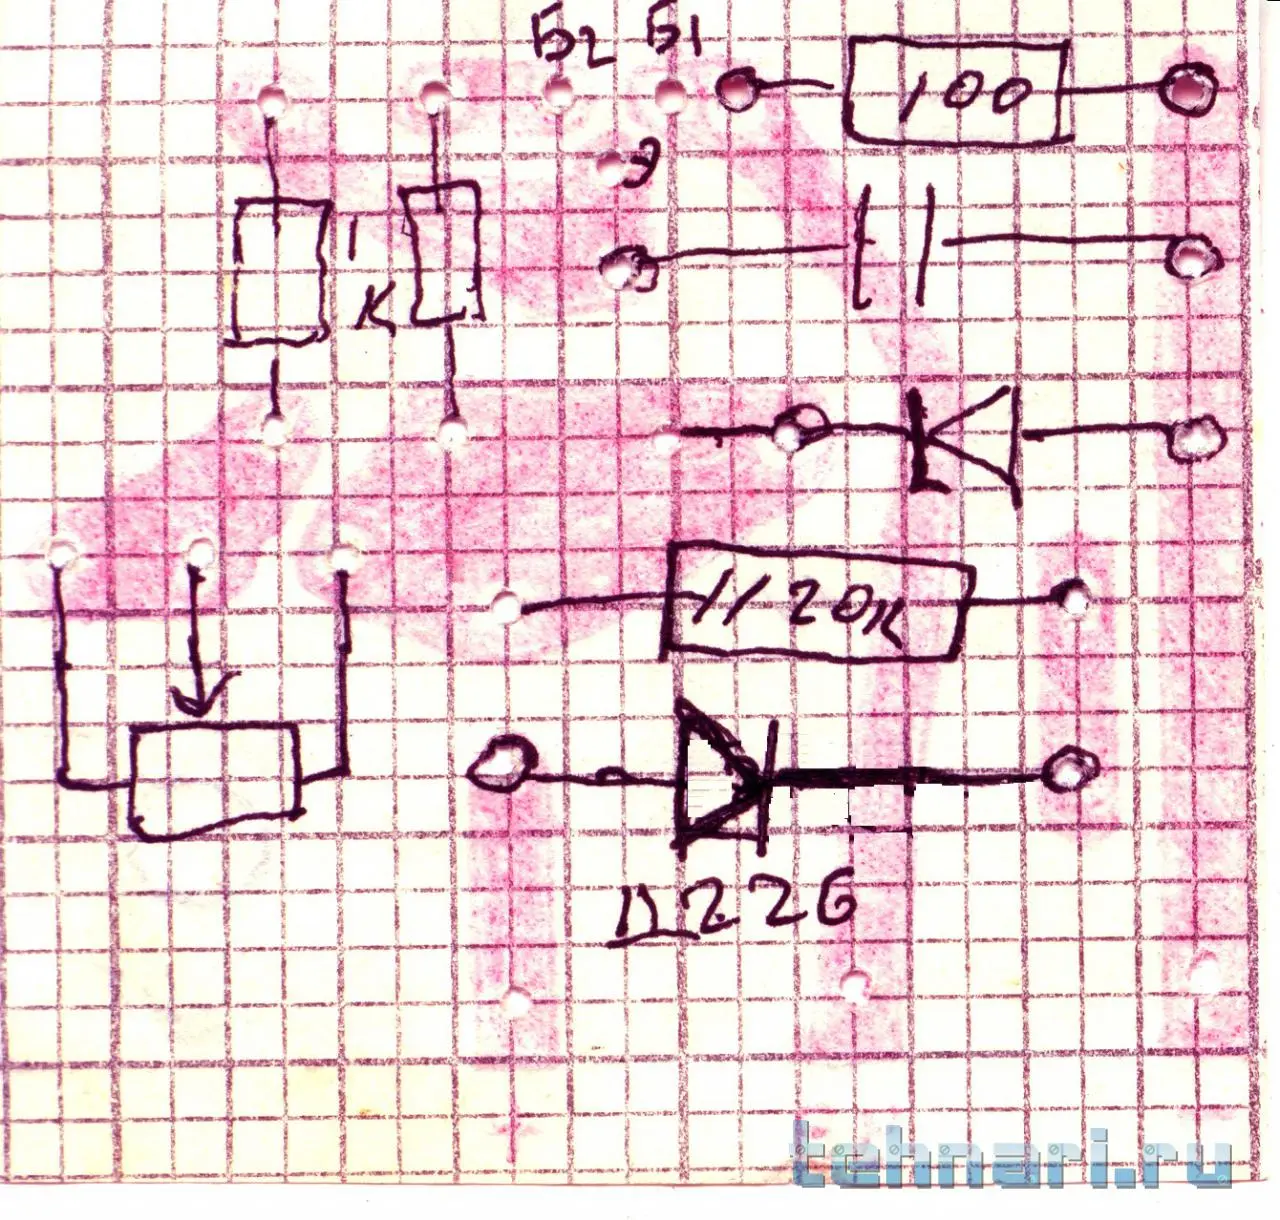 Б2 Б1
100
Э
1
К
1120к
Д226
tehnari.ru